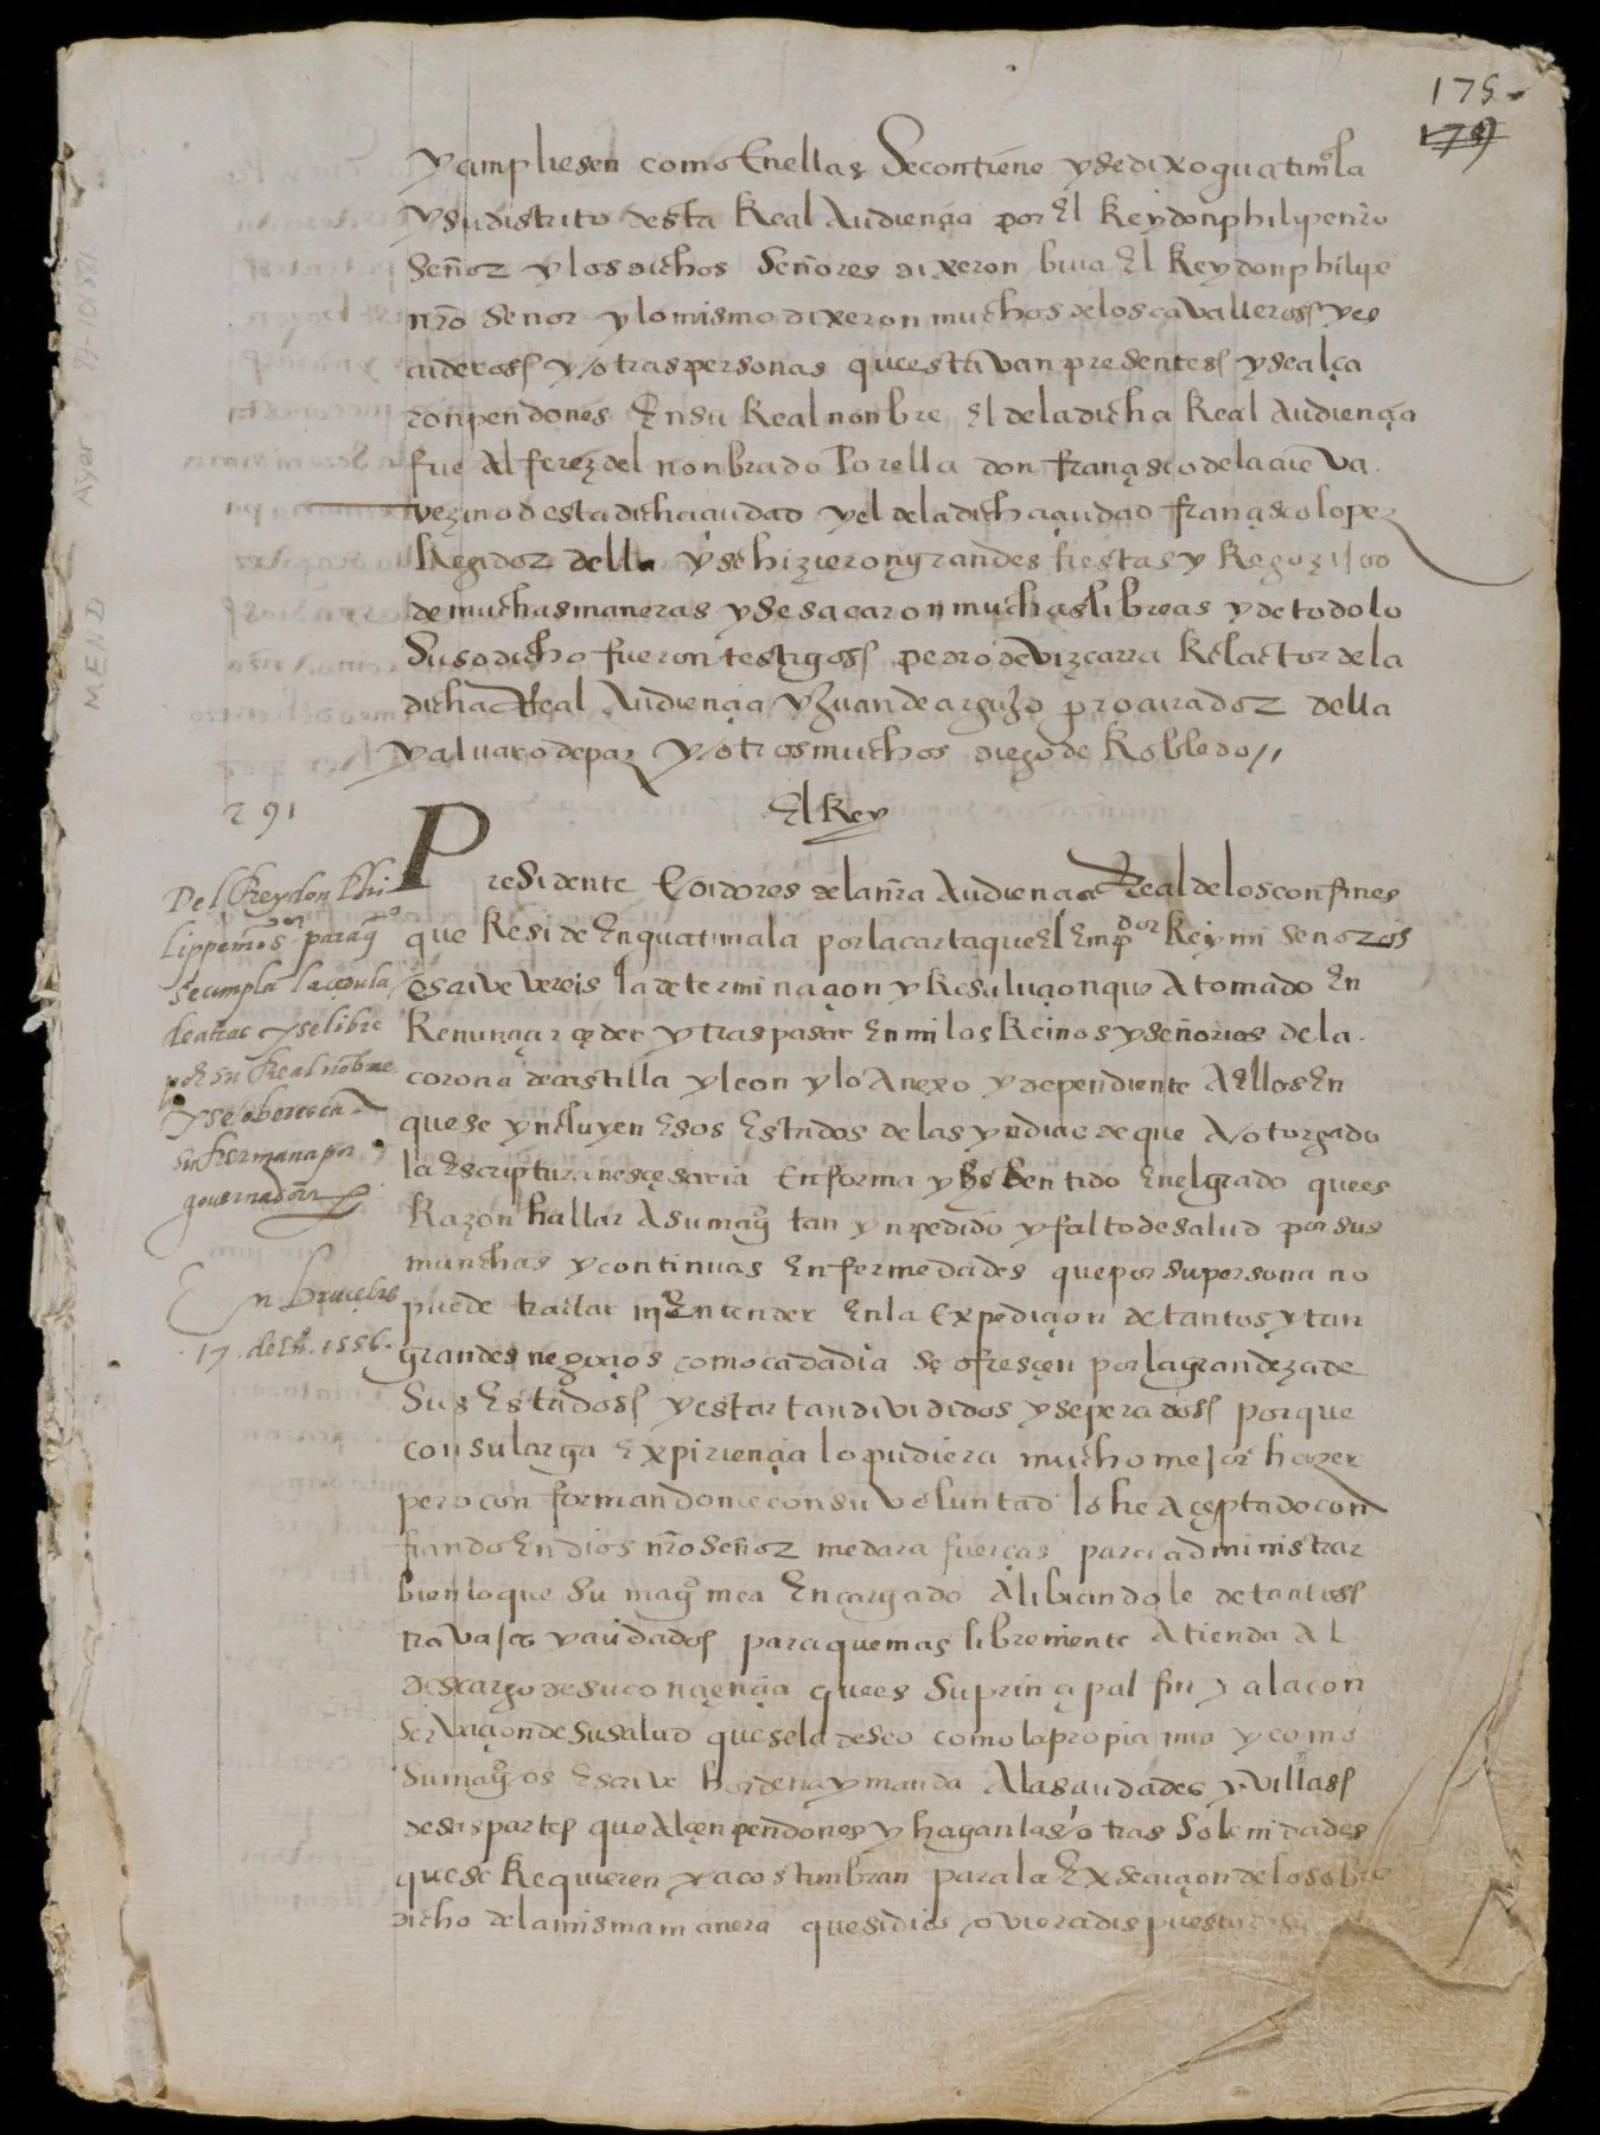 175
179
y cumpliesen como En ellas Se contiene y se dixo guatimala
y su distrito desta Real Audiençia por El Rey don philipe nro
Señor y los dichos Señores dixeron biua El Rey don philipe
nro Senor y lo mismo dixeron muchos de los cavalleross yes
cuderoSs y otras personas que estavan presentess y se alça
ron pendones En su Real nonbre El de la dicha Real Audiençia
fue Alferez del nonbrado Por ella don françisco de la cueva
vezino desta dicha ciudad y el de la dicha çiudad françisco lopez
Regidor della y se hizieron grandes fiestas y Regozijos
de muchas maneras y se sacaron muchas libreas y de todo lo
Suso dicho fueron testigoss pedro de Vizcarra Relactor de la
dicha Real Audiençia y Juan de arguJo procurador della
y aluaro de paz y otros muchos diego de Robledo //
291
El Rey
Del Rey don Phi
lippe nro sor para q
se cumpla la cedula
de atras y se libre
por su Real nōbre
y se obedesca A
su hermana por
gouernadora
En bruçelas
17 de En. 1556.
Presidente E oidores de la nra Audiençia Real de los confines
que Reside En guatimala por la carta que El Empor Rey mi señor os
escrive vereis la determinaçion y Resuluçion que A tomado En
Renunçiar çeder y traspasar En mi los Reinos y señorios de la
corona de castilla y leon y lo Anexo y dependiente A Ellos En
que se yncluyen Esos Estados de las yndias de que A otorgado
la Escriptura nesçesaria En forma y He Sentido En el grado que es
Razon hallar A su magd tan ynpedido y falto de salud por sus
munchas y continuas Enfermedades que por su persona no
puede tractar ni Entender En la Expediçion de tantos y tan
grandes negoçios como cada dia Se ofresçen por la grandeza de
Sus Estadoss y estar tan divididos y seperadoss porque
con su larga Expiriençia lo pudiera mucho mejor hazer
pero conformandome con su voluntad lo he Açeptado con
fiando En dios nro Señor me dara fuerças para administrar
bien lo que Su magd me a Encargado Alibiandole de tantoss
travajos y cuidados para que mas libremente Atienda Al
descargo de su conçiençia que es Su prinçipal fin y a la con
servaçion de Su salud que se la deseo como la propia mia y como
Su magd os Escrive hordena y manda A las ciudades y villass
desas partes que Alçen pendones y hagan las otras Solenidades
que se Requieren y acostunbran para la Exsecuçion de lo sobre
dicho de la misma manera que si dios oviera dispuesto
MEND
Ayer